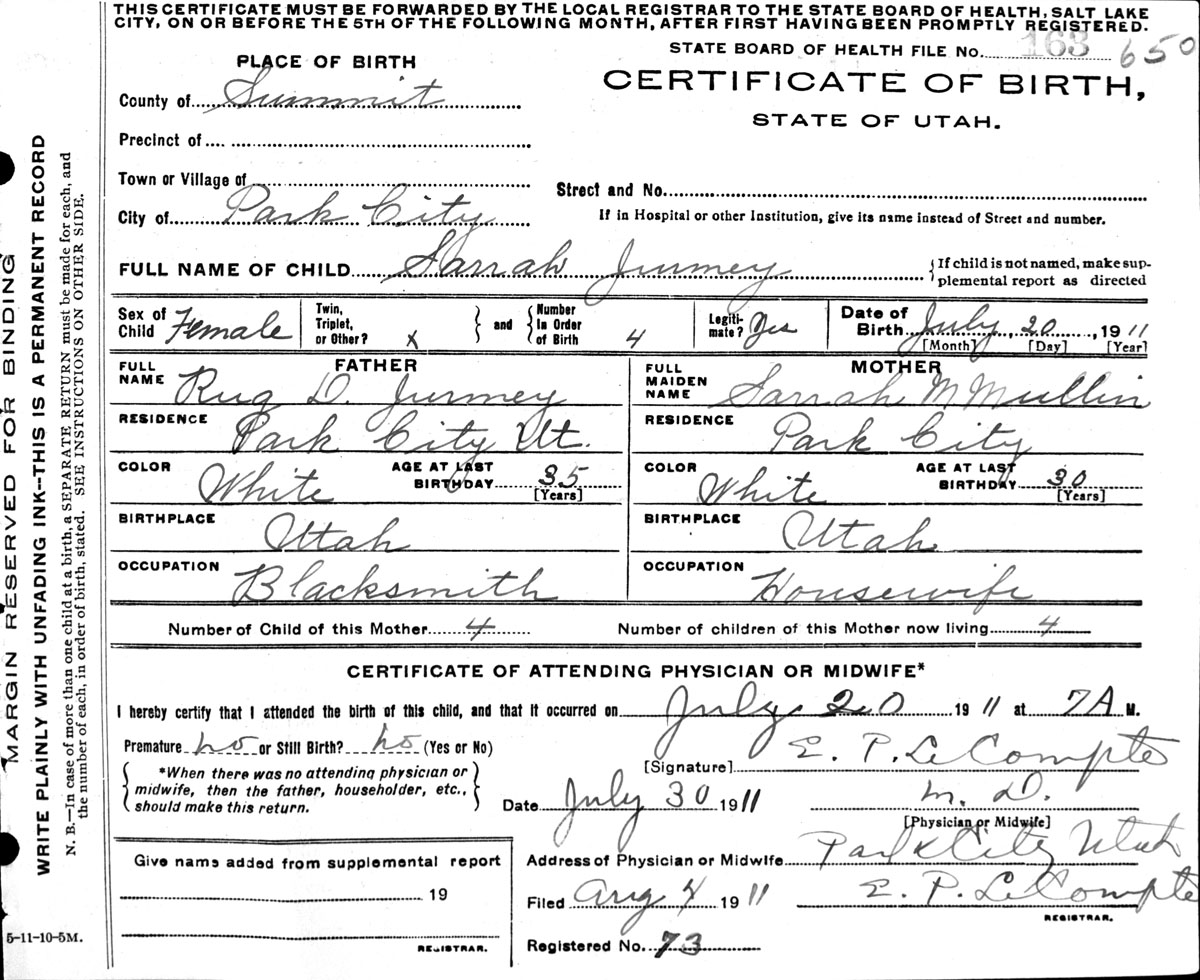 THIS CERTIFICATE MUST BE FORWARDED BY THE LOCAL REGISTRAR TO THE STATE BOARD OF HEALTH, SALT LAKE
CITY, ON OR BEFORE THE 5TH OF THE FOLLOWING MONTH, AFTER FIRST HAVING BEEN PROMPTLY REGISTERED.
STATE BOARD OF HEALTH FILE No. 163 650
PLACE OF BIRTH
CERTIFICATE OF BIRTH,
STATE OF UTAH.
County of Summit
Precinct of
Town or Village of
Street and No.
City of Park City
If in Hospital or other Institution, give its name instead of Street and number.
FULL NAME OF CHILD Sarrah Jurmey
{If child is not named, make sup-
plemental report as directed
Sex of Child Female
Twin, Triplet, or Other? X
and
Number In Order of Birth 4
Legiti-mate? Yes
Date of Birth July 20, 1911
[Month] [Day] [Year]
FATHER
FULL NAME Rug D. Jurmey
RESIDENCE Park City Ut.
COLOR White AGE AT LAST BIRTHDAY 35
[Years]
BIRTHPLACE Utah
OCCUPATION Blacksmith
MOTHER
FULL MAIDEN NAME Sarrah M Mullin
RESIDENCE Park City
COLOR White AGE AT LAST BIRTHDAY 30
[Years]
BIRTHPLACE Utah
OCCUPATION Housewife
Number of Child of this Mother 4 Number of children of this Mother now living 4
CERTIFICATE OF ATTENDING PHYSICIAN OR MIDWIFE*
I hereby certify that I attended the birth of this child, and that it occurred on July 20 1911 at 7A M.
Premature no or Still Birth? no (Yes or No)
*When there was no attending physician or
midwife, then the father, householder, etc.,
should make this return.
[Signature] E. P. LeCompte
Date July 30 1911 M. D.
[Physician or Midwife]
Give name added from supplemental report
19
REGISTRAR.
Address of Physician or Midwife Park City Utah
Filed Aug 4 1911 E. P. LeCompte
REGISTRAR.
Registered No. 73
MARGIN RESERVED FOR BINDING
WRITE PLAINLY WITH UNFADING INK--THIS IS A PERMANENT RECORD
N. B.—In case of more than one child at a birth, a SEPARATE RETURN must be made for each, and
the number of each, in order of birth, stated. SEE INSTRUCTIONS ON OTHER SIDE.
5-11-10-5M.